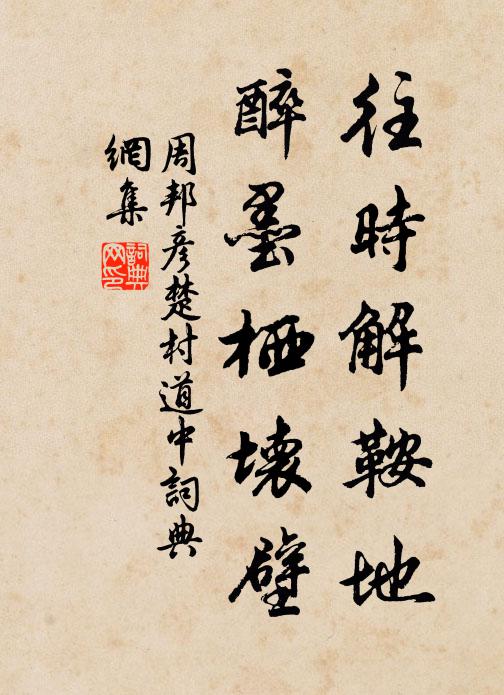 往時解鞍地
醉墨栖壊壁
周邦彦楚村道中詞典
網集
詞典
网印